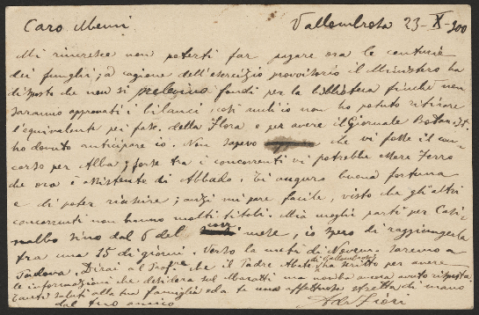 Caro Memi, Vallombrosa 23-X-900
Mi rincresce non poterti far pagare ora le
dei funghi; a cagione dell'esercizio provvisorio il Ministero ha
disposto che non si prelevino fondi per la biblioteca finché non
saranno approvati i bilanci, così anch'io non ho potuto ritirare
l'equivalente pei fasc. della Flora e per avere il Giornale Botan. It.
ho dovuto anticipare io. Non sapevo che vi fosse il con-
corso per Alba; forse tra i concorrenti vi potrebbe essere Ferro
che ora è assistente di . Ti auguro buona fortuna
e di poter riuscire; anzi mi pare facile, visto che gli altri
concorrenti non hanno molti titoli. Mia moglie partì per Casi-
nalbo sino dal 6 del corr. mese, io spero di raggiungerla
fra una 15 di giorni. Verso la metà di Novem. saremo a
Padova. Dirai al Prof. che il Padre di Vallombrosa ha scritto per avere
le informazioni che desidera sul ma non ha ancora avuto risposta.
Tanti saluti alla tua famiglia ed a te una affettuosa stretta di mano
dal tuo amico Ad. Fiori